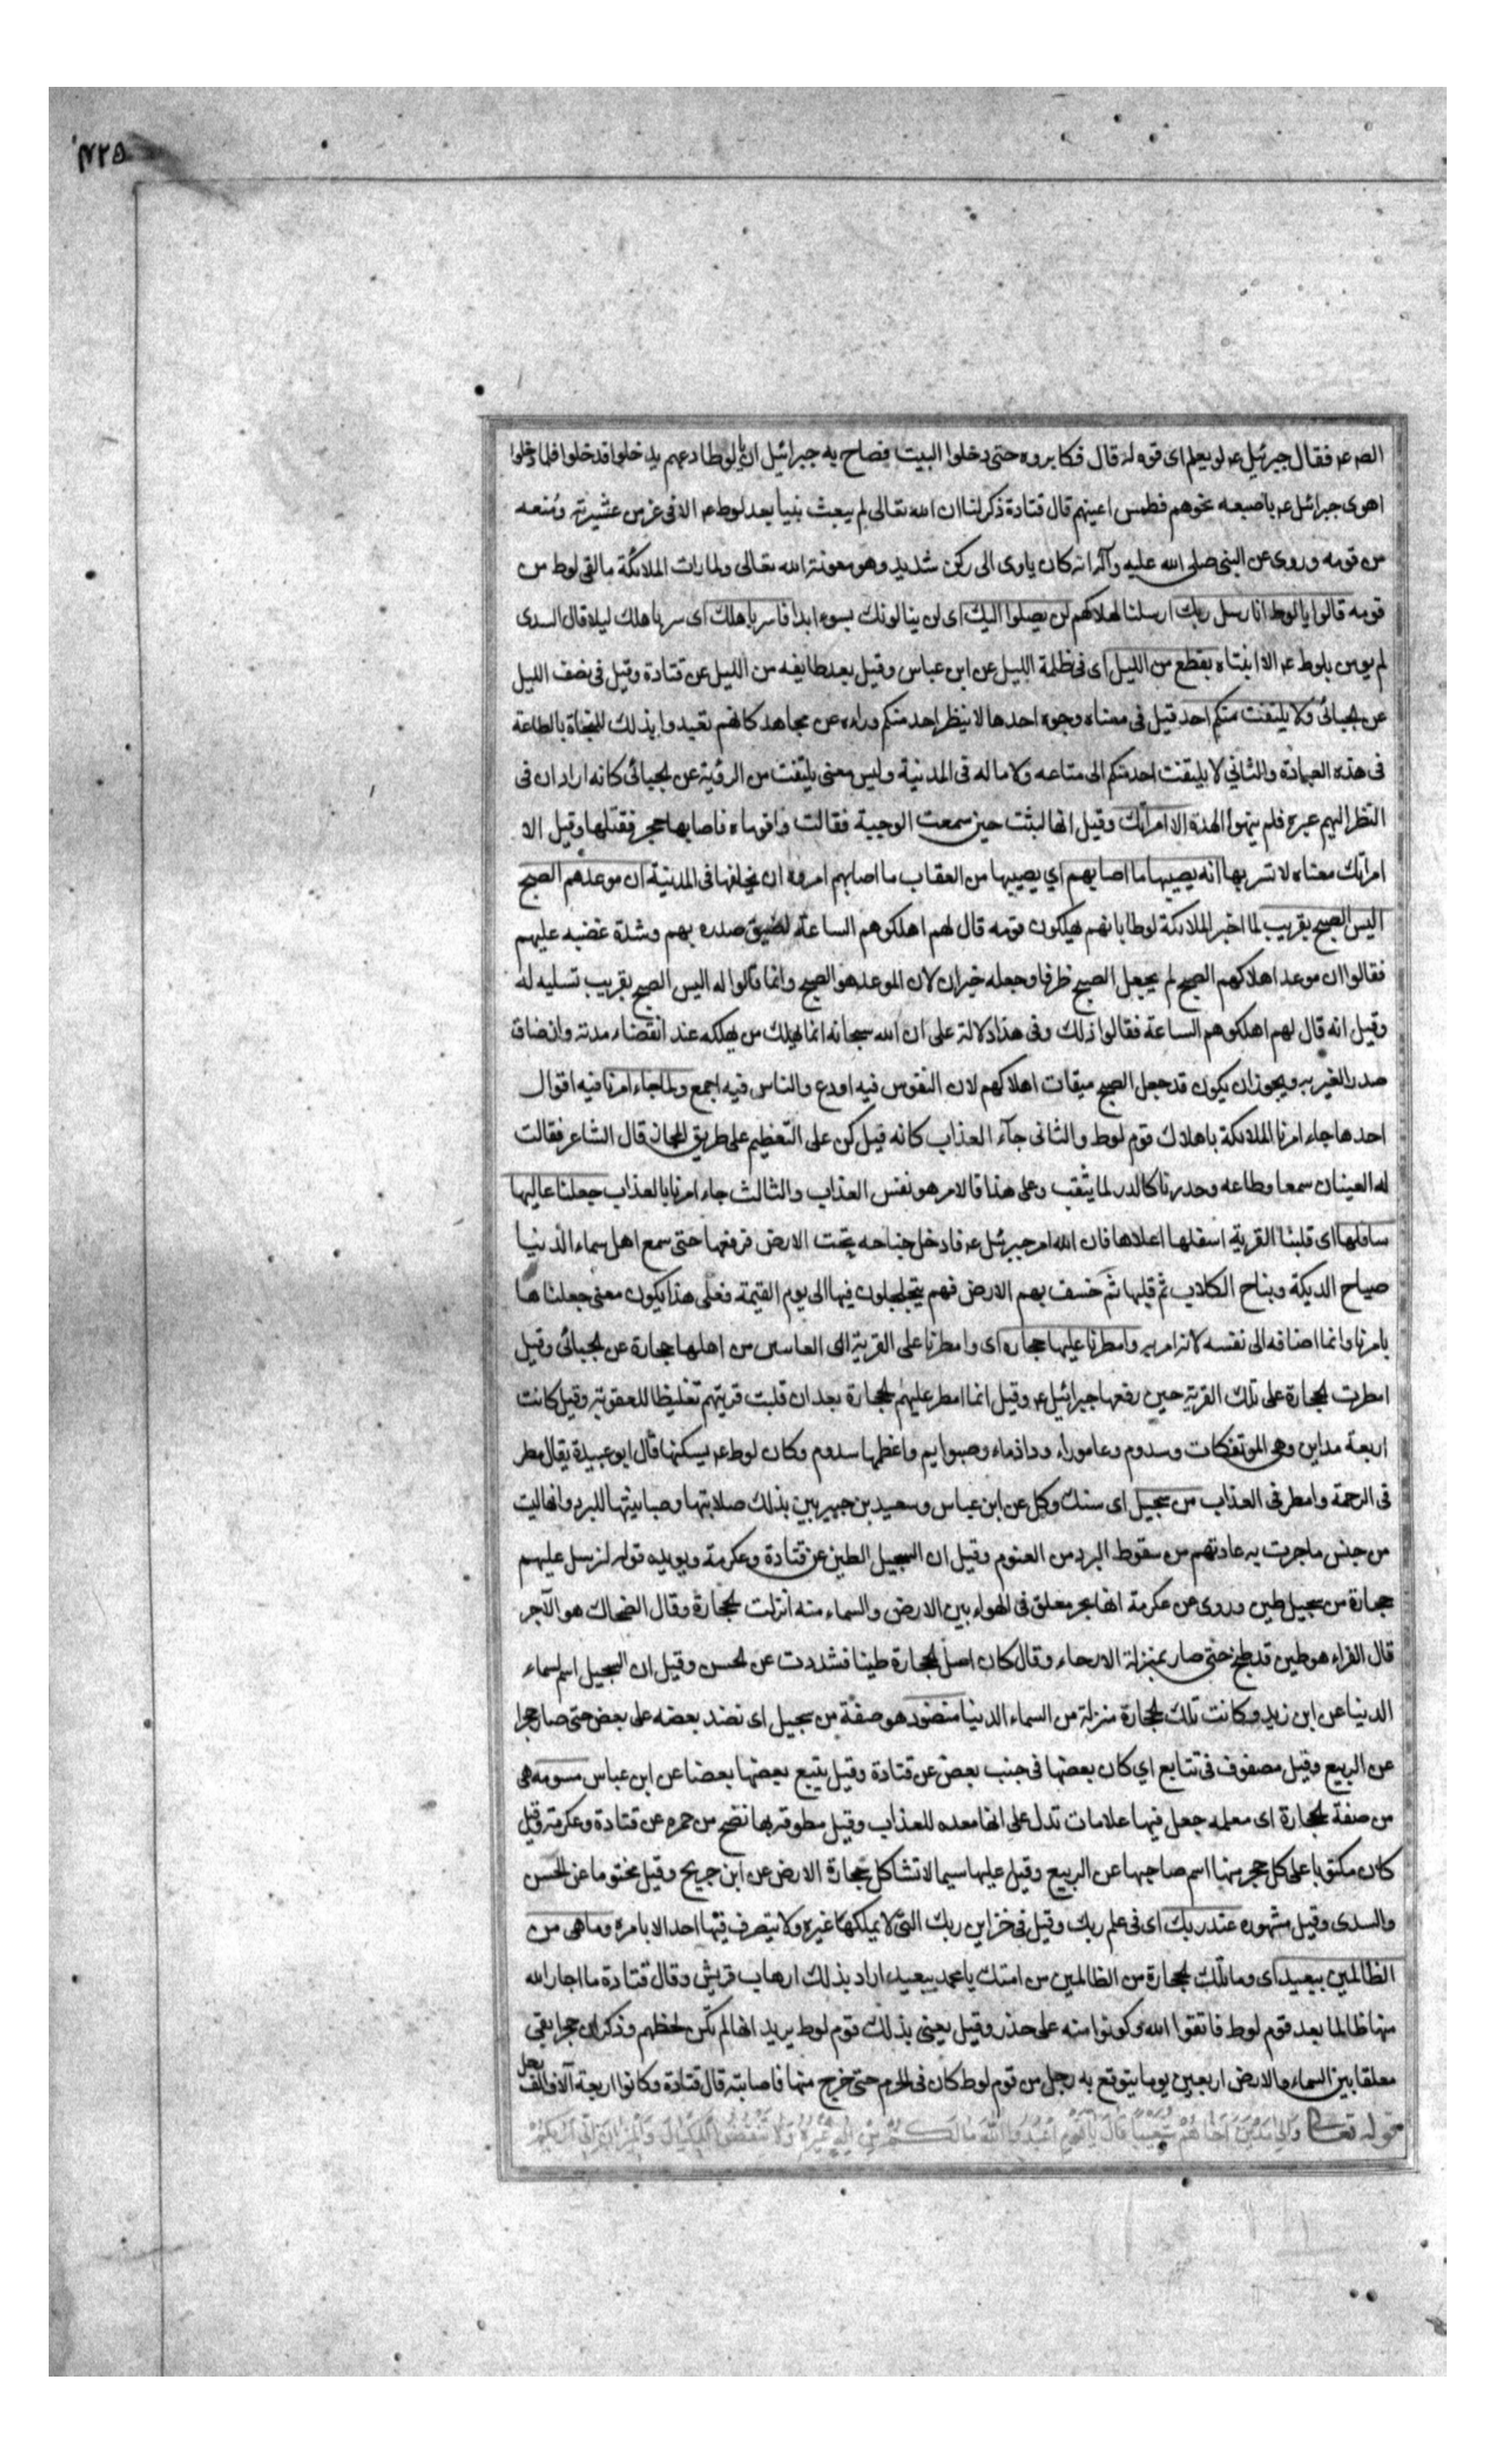 ۴۲۵
الصه عم فقال جبرئيل عم لو يعلم اى قوه له قال فكابروه حتى دخلوا البيت فصاح به جبرائيل ان يا لوط ادعهم يدخلوا قد خلوا فلما دخلوا
اهوى جبرائيل عم باصبعه نحوهم فطمس اعينهم قال قتادة ذكر لنا ان الله تعالى لم يبعث بنيا بعد لوط عم الا فى عز من عشيرته ومنعه
من قومه وروى عن النبى صلى الله عليه وآله انه كان ياوى الى ركن شديد وهو معونة الله تعالى ولما رات الملائكة مالقى لوط من
قومه قالوا يا لوط انا رسل ربك ارسلنا لهلاكهم لن يصلوا اليك اى لن ينالونك بسوء ابدا فاسر باهلك اى سر باهلك ليلا قال السدى
لم يومن بلوط عم الا ابنتاه بقطع من الليل اى فى ظلمة الليل عن ابن عباس وقيل بعد طايفه من الليل عن قتادة وقيل فى نصف الليل
عن الجبائى ولا يلتفت منكم احد قيل فى معناه وجوه احدها لا ينظر احد منكم وراه عن مجاهد كانهم تعبدوا بذلك للنجاة بالطاعة
فى هذه العبادة والثاني لا يليتفت احد منكم الى متاعه ولا ماله فى المدينة وليس معنى يلتفت من الرؤية عن الجبائى كانه اراد ان فى
النظر اليهم عبره فلم ينهوا الهذه الا امراتك وقيل انها لبثت حين سمعت الوجبة فقالت واقوماه فاصابها حجر فقتلها وقيل الا
امراتك معناه لا تسر بها انه يصيبها ما اصابهم اي يصيبها من العقاب ما اصابهم امروه ان يخلفها فى المدينة ان موعدهم الصبح
اليس الصبح بقريب لما اخبر الملائكة لوطا بانهم يهلكون قومه قال لهم اهلكوهم الساعة لضيق صدره بهم وشدة غضبه عليهم
فقالوا ان موعد اهلاكهم الصبح لم يجعل الصبح ظرفا وجعله خبر ان لان الموعد هو الصبح وانما قالوا له اليس الصبح بقريب تسليه له
وقيل انه قال لهم اهلكوهم الساعة فقالوا ذلك وفى هذا دلالة على ان الله سبحانه انما يهلك من يهلكه عند انقضاء مدته وان ضاق
صدر الغير به ويجوز ان يكون قد جعل الصبح ميقات اهلاكهم لان النفوس فيه اودع والناس فيه اجمع ولما جاء امرنا فيه اقوال
احدها جاء امرنا الملائكة باهلاك قوم لوط والثانى جآء العذاب كانه قيل كن على التعظيم على طريق المجاز قال الشاعر فقالت
له العينان سمعا وطاعه وحدرتا كالدر لما يثقب وعلى هذا فالامر هو نفس العذاب والثالث جاء امرنا بالعذاب جعلنا عاليها
سافلها اى قلبنا القرية اسفلها اعلاها فان الله امر جبرئيل عم فادخل جناحه تحت الارض فرفعها حتى سمع اهل سماء الدنيا
صياح الديكة ونباح الكلاب ثم قلبها ثم خسف بهم الارض فهم يتجلجلون فيها الى يوم القيمة فعلى هذا يكون معنى جعلنا ها
بامرنا وانما اضافه الى نفسه لانه امر به وامطرنا عليها حجاره اى وامطرنا على القرية اى الغاسين من اهلها حجارة عن الجبائى وقيل
امطرت الحجارة على تلك القرية حين رفعها جبرائيل عم وقيل انما امطر عليهم الحجارة بعد ان قلبت قريتهم تغليظا للعقوبة وقيل كانت
اربعة مداين وهى الموتفكات وسدوم وعاموراء وداذماء وصبوايم واعظمها سدوم وكان لوط عم يسكنها قال ابو عبيدة يقال مطر
فى الرحمة وامطر فى العذاب من سجيل اى سنك وكل عن ابن عباس وسعيد بن جبير بين بذلك صلابتها ومباينتها للبرد وانها ليت
من جنس ماجرت به عادتهم من سقوط البرد من الغيوم وقيل ان السجيل الطين عن قتادة وعكرمة ويويده قوله لنرسل عليهم
حجارة من سجيل طين وروى عن عكرمة انها بحر معلق فى الهواء بين الارض والسماء منه انزلت الحجارة وقال الضحاك هو الآجر
قال الفراء هو طين قد طبخ حتى صار بمنزلة الارحاء وقال كان اصل الحجارة طينا فشددت عن الحسن وقيل ان السجيل اسم لسماء
الدنيا عن ابن زيد وكانت تلك الحجارة منزلة من السماء الدنيا منضود هو صفة من سجيل اى نضد بعضه على بعض حتى صار حجرا
عن الربيع وقيل مصفوف فى تتابع اي كان بعضها فى جنب بعض عن قتادة وقيل يتبع بعضها بعضا عن ابن عباس مسومه هى
من صفة الحجارة اى معلمه جعل فيها علامات تدل على انها معده للعذاب وقيل مطوقة بها نضح من حمره عن قتادة وعكرمة وقيل
كان مكتوبا على كل حجر منها اسم صاحبها عن الربيع وقيل عليها سيما لا تشاكل حجارة الارض عن ابن جريح وقيل مختوما عن الحسن
والسدى وقيل مشهوره عند ربك اى فى علم ربك وقيل فى خزاين ربك التى لا يملكها غيره ولا يتصرف فيها احد الا بامره وما هى من
الظالمين ببعيد اى وما تلك الحجارة من الظالمين من امتك يا محمد ببعيد اراد بذلك ارهاب قريش وقال قتادة ما اجار الله
منها ظالما بعد قوم لوط فاتقوا الله وكونوا منه على حذر وقيل يعنى بذلك قوم لوط يريد انها لم تكن لتخطهم وذكر ان حجرا بقى
معلقا بين السماء والارض اربعين يوما يتوقع به رجل من قوم لوط كان فى الحرم حتى خرج منها فاصابته قال قتادة وكانوا اربعة آلاف الف
قوله تعالى وَالى مَدْيَنَ اَخَاهُمْ شُعَيْباً قَالَ يَا قَوْمِ اعْبُدُوا اللهَ مَا لَكُمْ مِنْ اِلهٍ غَيْرُهُ وَلَا تَنْقُصُوا الْمِكْيَالَ وَالْمِيزَانَ اِنّى اَرَيكُمْ